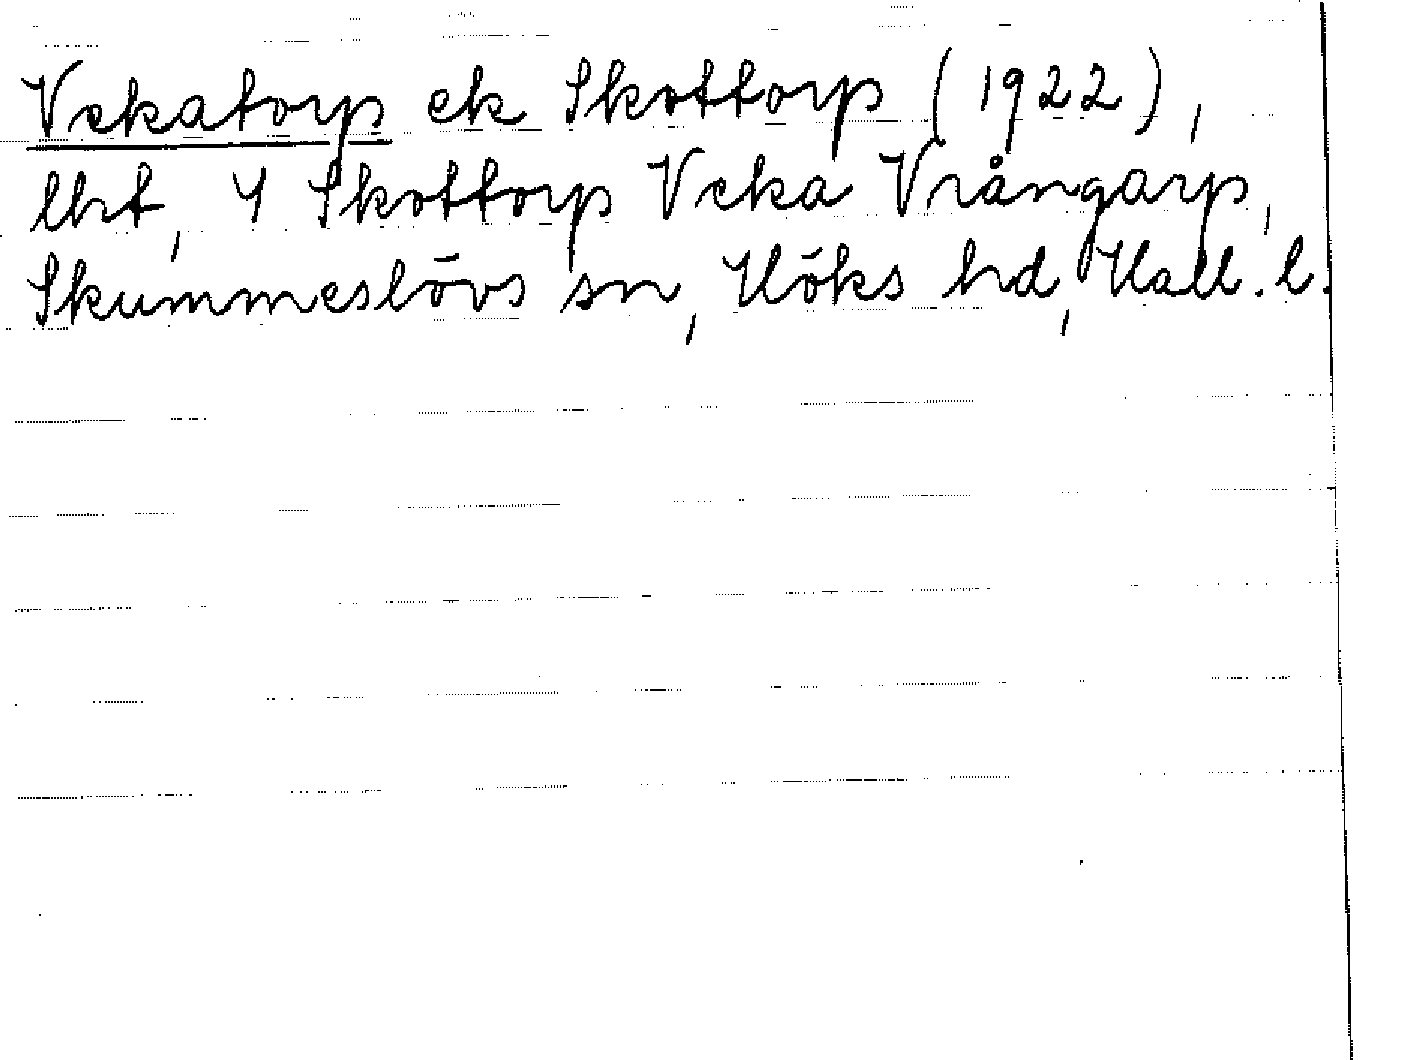 Vekatorp ek Skottorp (1922),
lht, Y Skottorp Veka Vrångarp,
Skummeslövs sn, Höks hd, Hall. l.